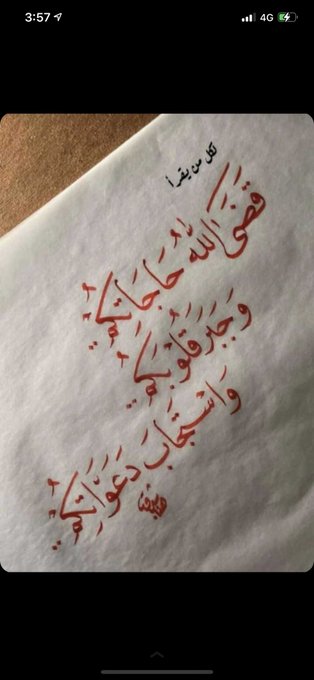 3:57
4G
لكل من يقرأ
قَضَى اللهُ حَاجَاتِكُمُ..
وَجَبَرَ قُلُوبَكُمُ..
وَاسْتَجَابَ دَعَوَاتِكُمُ..